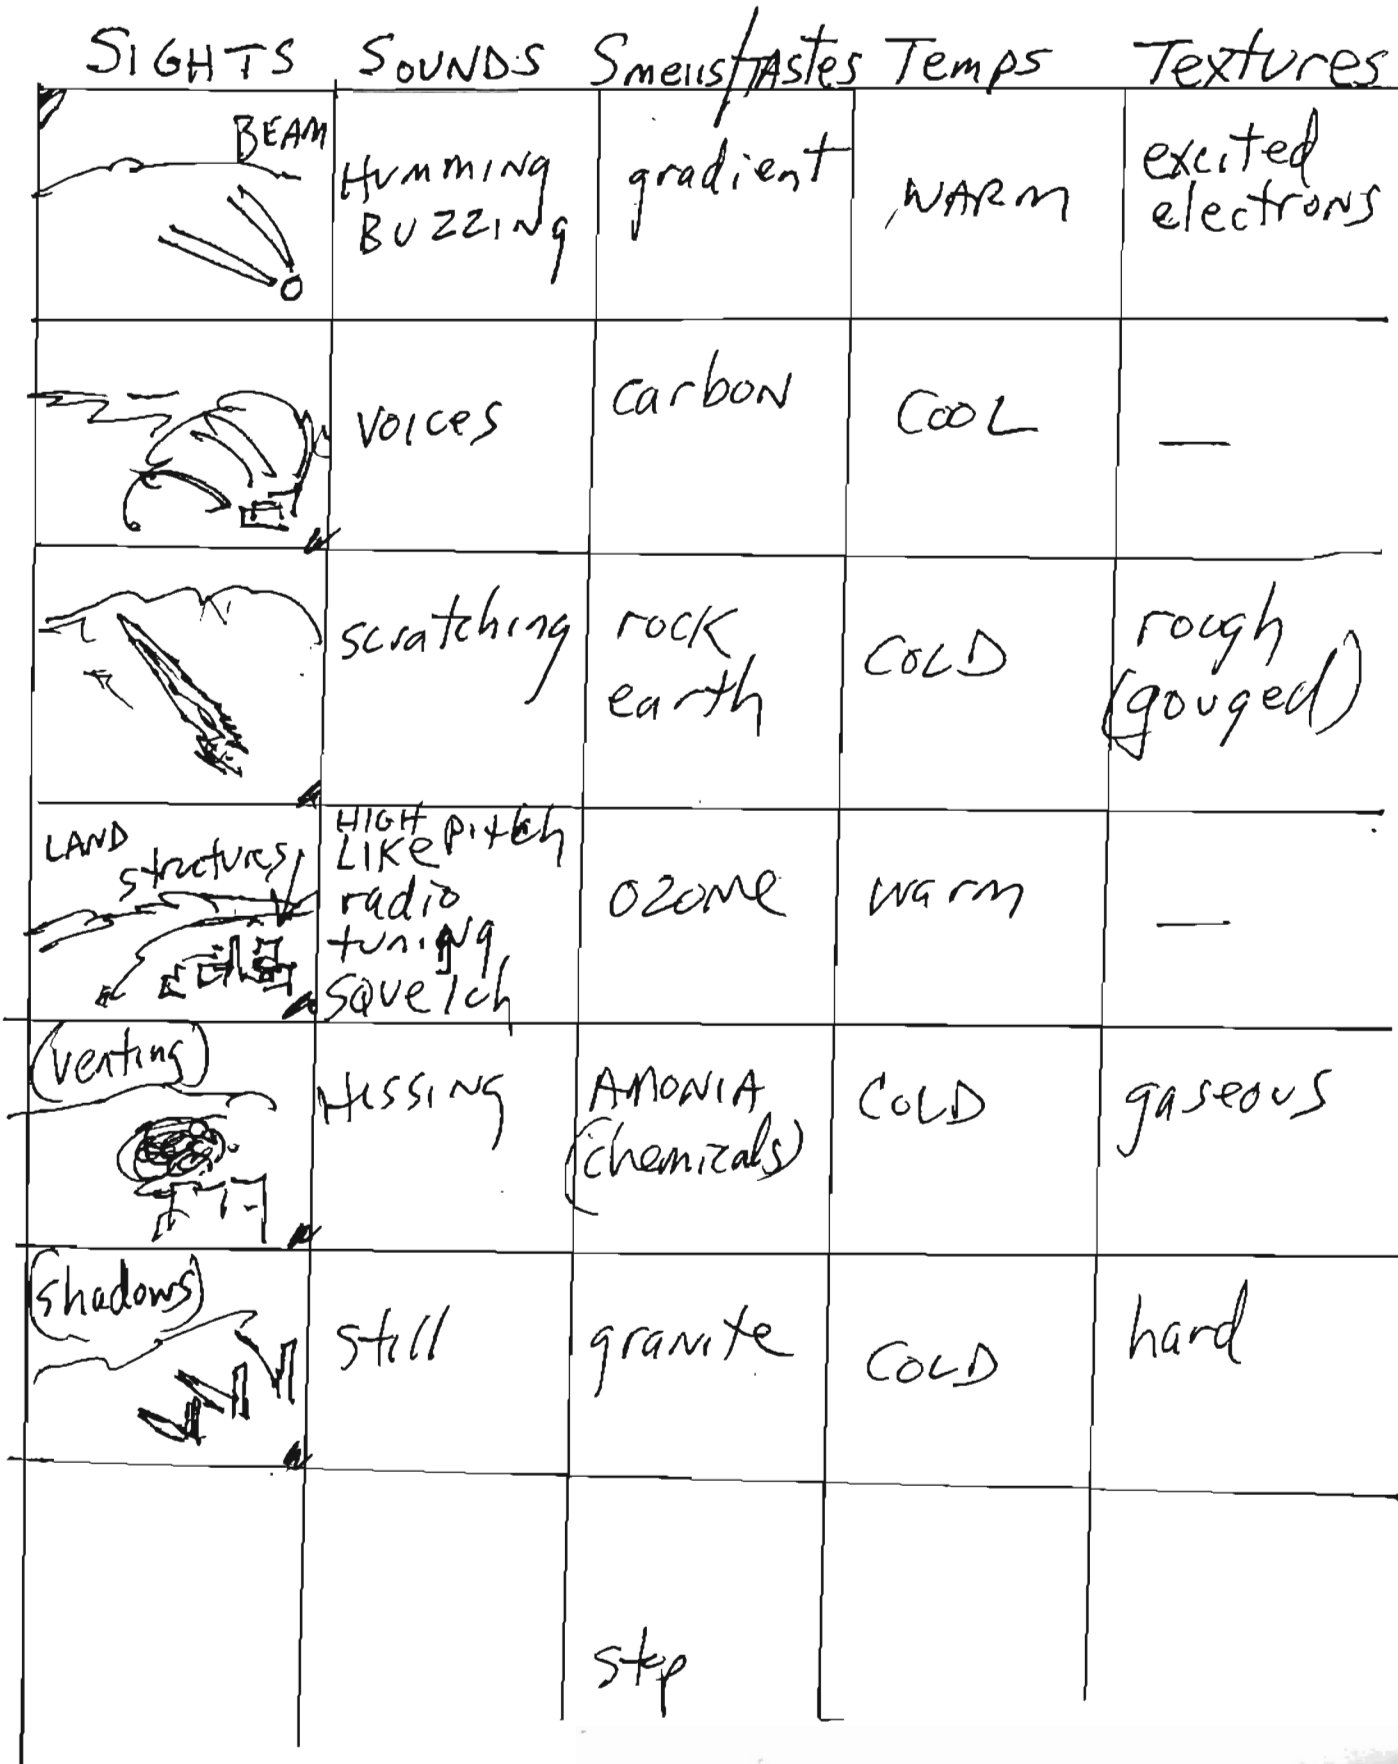 SIGHTS SOUNDS Smells/TAstes Temps Textures
BEAM
HUMMING
BUZZING
gradient
WARM
excited
electrons
voices
carbon
COOL
—
scratching
rock
earth
COLD
rough
(gouged)
LAND
structures
HIGH pitch
LIKE
radio
tuning
squelch
ozone
warm
—
venting
HISSING
AMONIA
(chemicals)
COLD
gaseous
shadows
still
granite
COLD
hard
stop